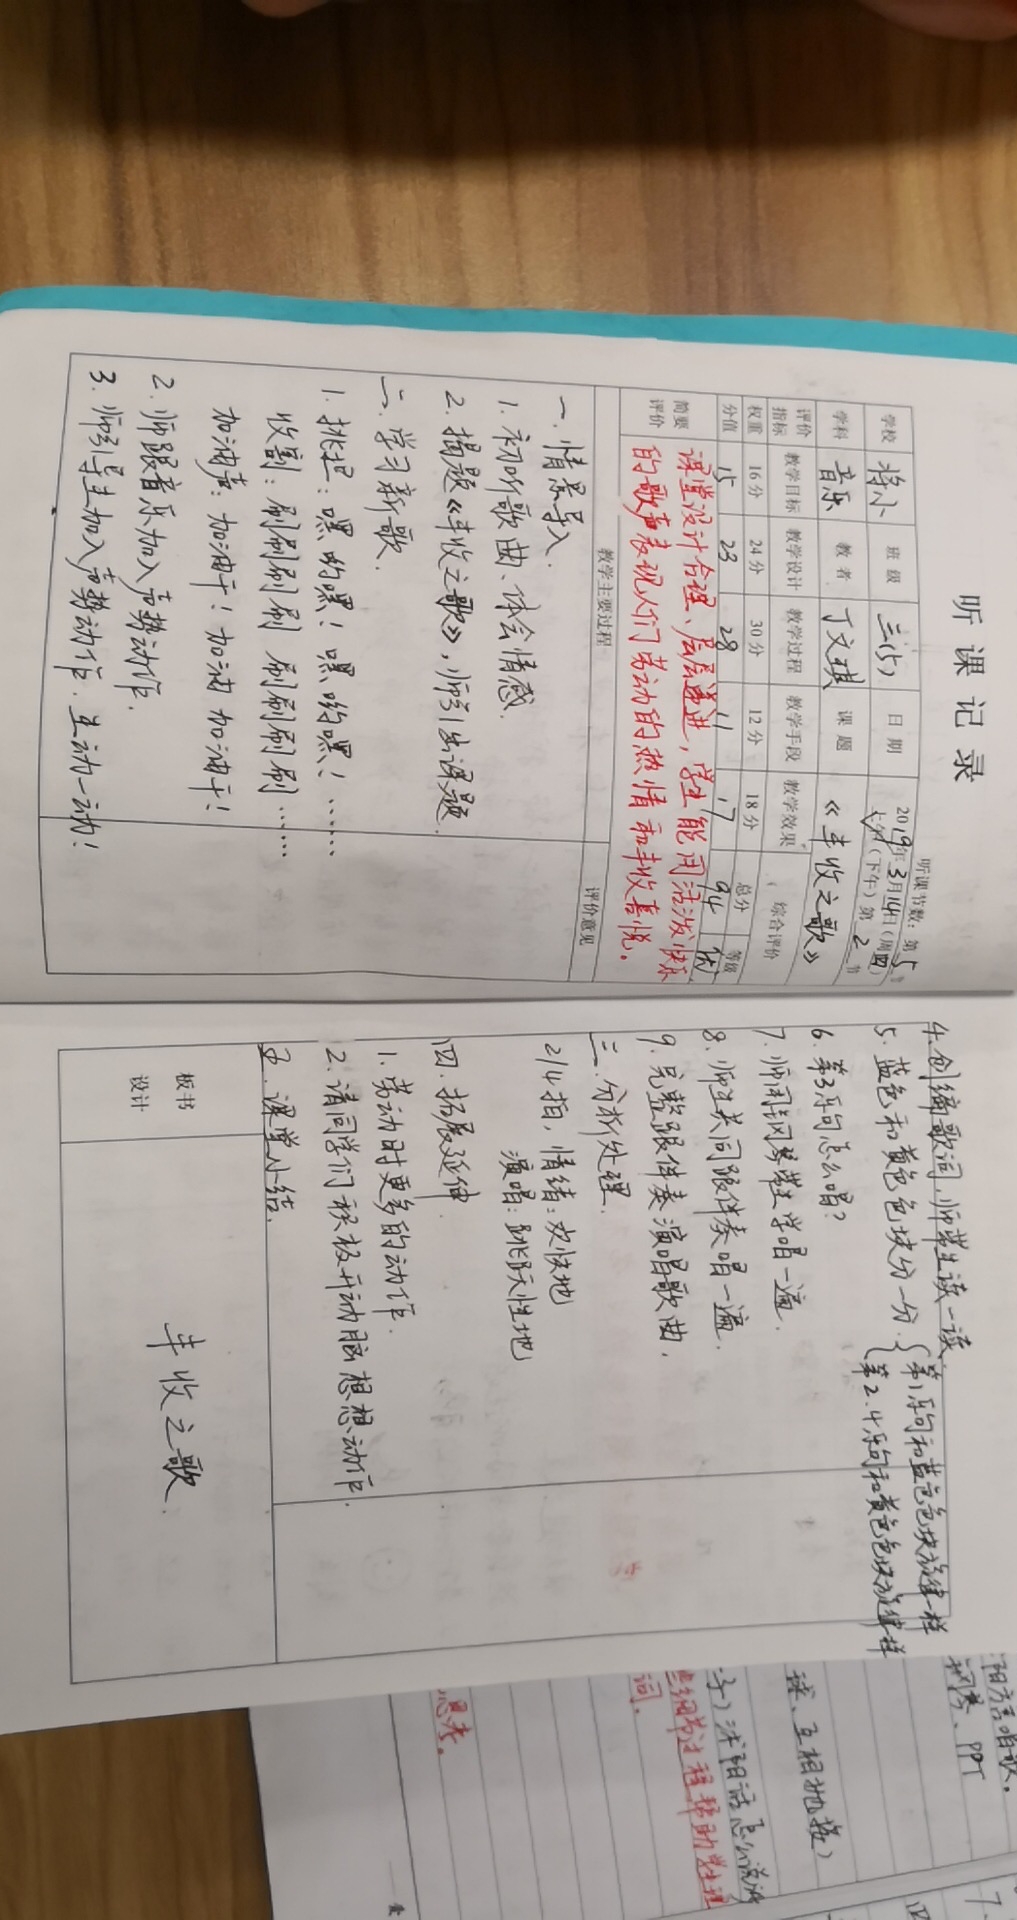 听课记录
听课节数：第5节
学校 蒋小 班级 三(5) 日期 2019年3月14日(周四) (下午)第2节
学科 音乐 教者 丁文琪 课题 《丰收之歌》
评价指标 教学目标 教学设计 教学过程 教学手段 教学效果 综合评价
权重 16分 24分 30分 12分 18分 总分 等级
分值 15 23 28 11 17 94 优
简要评价 课堂设计合理、层层递进，学生能用活泼快乐
的歌声表现人们劳动的热情和丰收喜悦。
教学主要过程 评价意见
一.情景导入.
1.初听歌曲、体会情感.
2.揭题《丰收之歌》，师引出课题.
二.学习新歌.
1.挑担：嘿哟嘿！嘿哟嘿！……
收割：刷刷刷刷 刷刷刷刷……
加油声：加油干！加油 加油干！
2.师跟音乐加入声势动作.
3.师引导生加入声势动作.互动一动！
4.创编歌词.师带生读一读.
5.蓝色和黄色色块分一分.{第1乐句和蓝色色块旋律一样
第2.4乐句和黄色色块旋律一样
6.第3乐句怎么唱？
7.师用钢琴带生学唱一遍.
8.师生共同跟伴奏唱一遍.
9.完整跟伴奏演唱歌曲.
三.分析处理.
2/4拍，情绪：欢快地
演唱：跳跃性地
四.拓展延伸.
1.劳动时更多的动作.
2.请同学们积极开动脑想想动作.
五.课堂小结.
板书设计 丰收之歌.
阳方言唱歌。
钢琴、PPT
球、互相抛接)
沭阳话怎么说
细节过程帮助学生理
词.
思考。